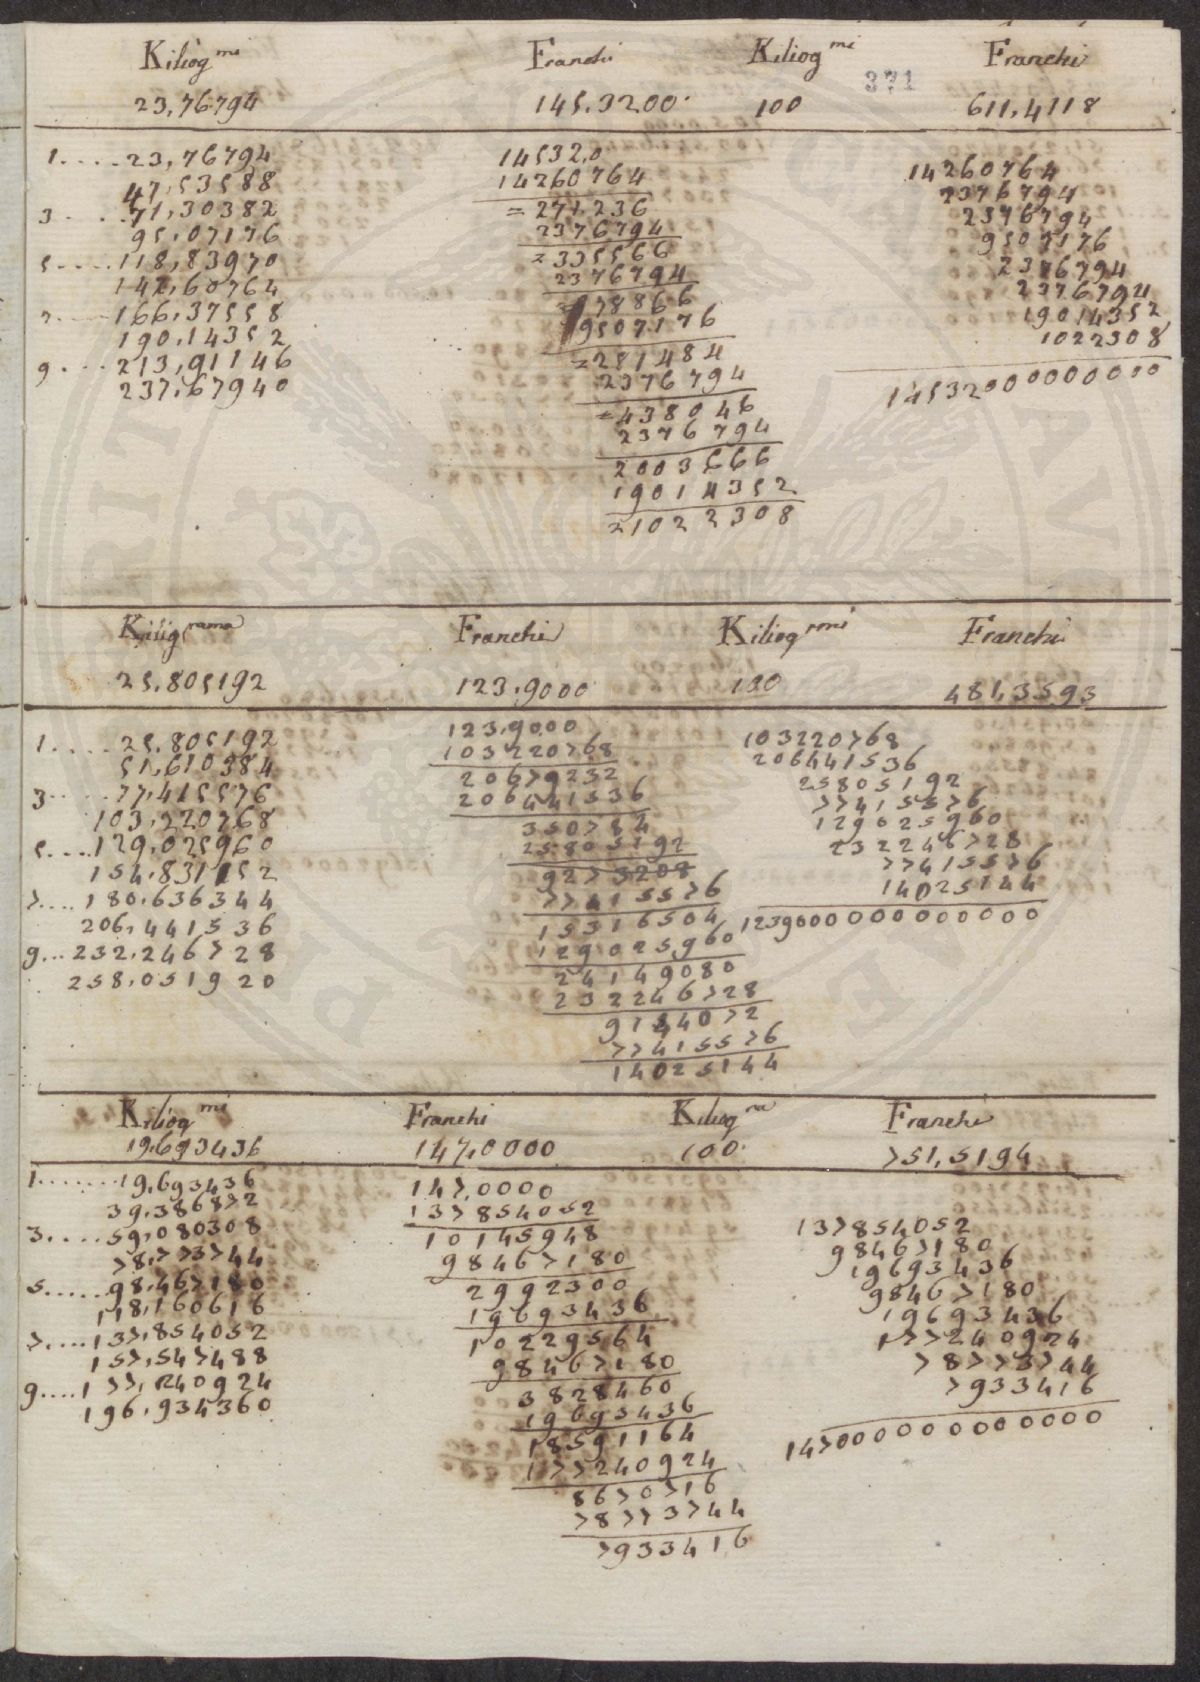 Kiliog mi Franchi Kiliog mi Franchi
371
23,76794 145,3200 100 611,4118
1....23,76794
47,53588
3.....71,30382
95,07176
5....118,83970
142,60764
7....166,37558
190,14352
9....213,91146
237,67940
14532,0
14260764
=271,236
2376794
=335566
2376794
=98866
9507176
=281484
2376794
=438046
2376794
2003666
19014352
21022308
14260764
2376794
2376794
9507176
2376794
2376794
19014352
1022308
1453200000000
Kilig rama Franchi Kiliog rmi Franchi
25,805192 123,9000 100 481,3593
1.....25,805192
51,610384
3......77,415576
103,220768
5....129,025960
154,831152
7....180,636344
206,441536
9...232,246728
258,051920
123,9000
103220768
20679232
206441536
350784
25805192
9273208
77415576
15316504
129025960
24149080
232246728
9244072
77415576
14025144
103220768
206441536
25805192
77415576
129025960
232246728
77415576
14025144
1239000000000000
Kiliog mi Franchi Kiliog ra Franchi
19,693436 147,0000 100 751,5194
1.......19,693436
39,386872
3....59,080308
78,773744
5......98,467180
118,160616
7....137,854052
157,547488
9....177,240924
196,934360
147,0000
137854052
10145948
98467180
2992300
19693436
102229564
98467180
3828460
19693436
18591164
177240924
8670716
78773744
7933416
137854052
98467180
19693436
98467180
19693436
177240924
78773744
7933416
14700000000000